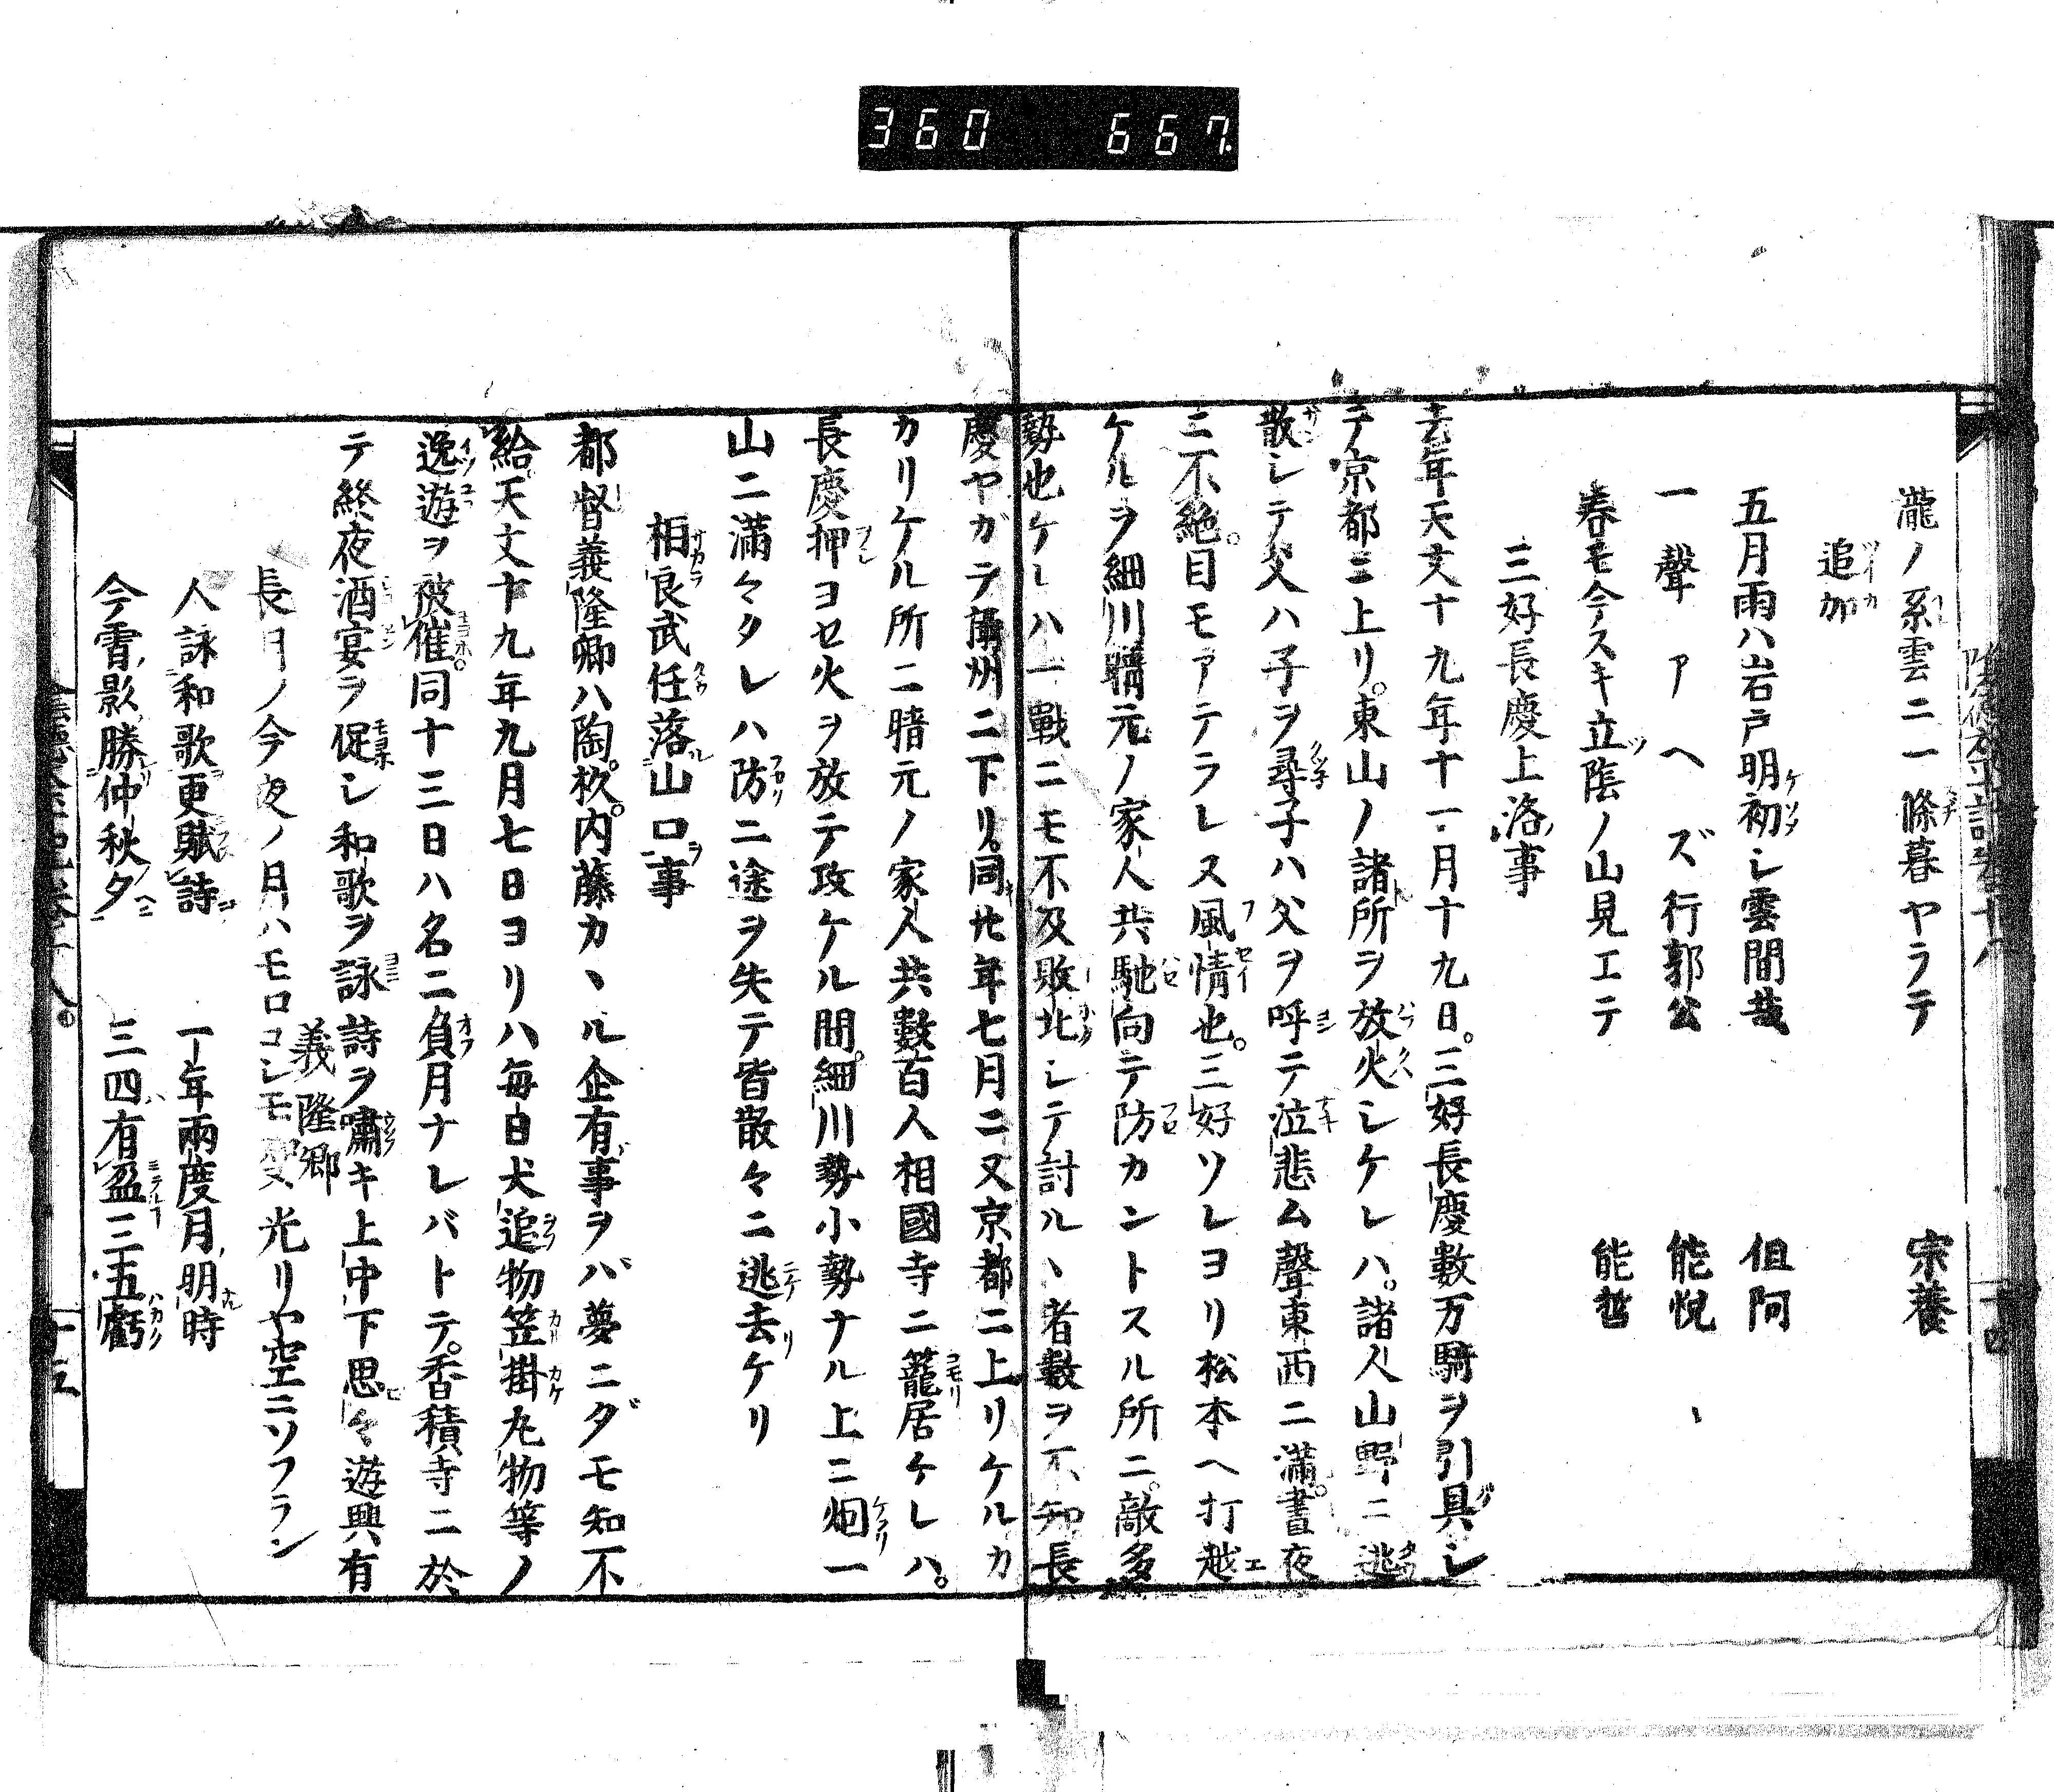 360 667
瀧ノ糸雲ニ一條暮ヤラテ 宗養
追加
五月雨ハ岩戸明初シ雲間哉 伹阿
一聲アヘズ行郭公 能悦
春モ今スキ立陰ノ山見エテ 能哲
三好長慶上洛事
去年天文十九年十一月十九日。三好長慶數万騎ヲ引具シ
テ京都ニ上リ。東山ノ諸所ヲ放火シケレハ。諸人山野ニ逃
散シテ父ハ子ヲ尋子ハ父ヲ呼テ泣悲ム聲東西ニ滿。晝夜
ニ不絶。目モアテラレス風情也。三好ソレヨリ松本ヘ打越
ケルヲ細川晴元ノ家人共馳向テ防カントスル所ニ。敵多
勢也ケレハ一戰ニモ不及敗北シテ討ルヽ者數ヲ不知長
慶ヤガテ攝州ニ下リ。同廾年七月ニ又京都ニ上リケルカ
カリケル所ニ晴元ノ家人共數百人相國寺ニ籠居ケレハ。
長慶押ヨセ火ヲ放テ攻ケル間。細川勢小勢ナル上ニ烟一
山ニ滿々タレハ防ニ途ヲ失テ皆散々ニ逃去ケリ
相良武任落山口事
都督義隆卿ハ陶。杦。内藤カヽル企有事ヲバ夢ニダモ知不
給天文十九年九月七日ヨリハ毎日犬追物笠掛丸物等ノ
逸遊ヲ被催。同十三日ハ名ニ負月ナレバトテ。香積寺ニ於
テ終夜酒宴ヲ促シ和歌ヲ詠詩ヲ嘯キ上中下思々遊興有
義隆卿
長月ノ今夜ノ月ハモロコシモ 光リヤ空ニソフラン
人詠和歌更賦詩 一年兩度月明時
今宵影勝仲秋夕 三四有盈三五虧